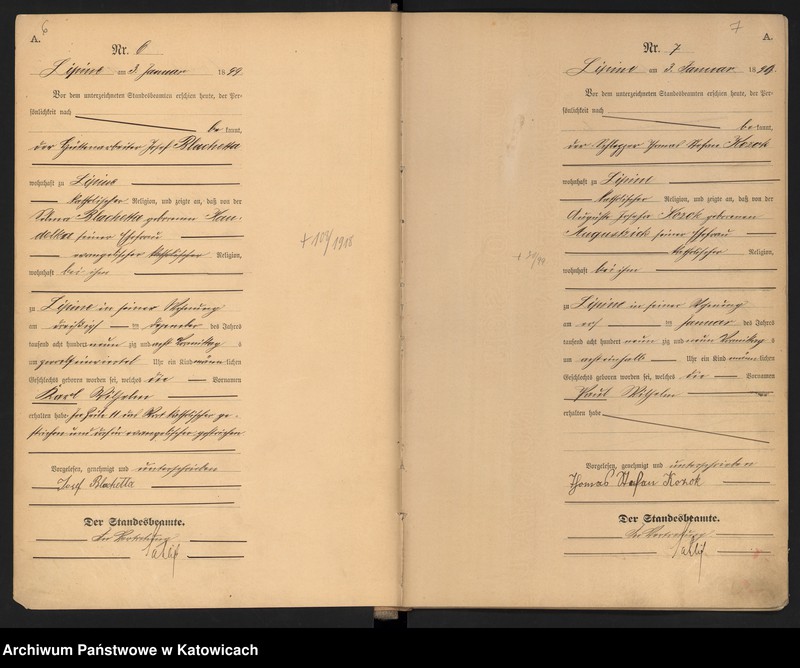 6
A.
Nr. 6
Lipine am 3. Januar 1899.
Vor dem unterzeichneten Standesbeamten erschien heute, der Per-
sönlichkeit nach
be kannt,
der Hüttenarbeiter Josef Blachetta
wohnhaft zu Lipine
katholischer Religion, und zeigte an, daß von der
Blachetta geborenen
seiner Ehefrau
evangelischer katholischer Religion,
wohnhaft bei ihm
zu Lipine in seiner Wohnung
am dreißigsten Dezember des Jahres
tausend acht hundert neun zig und acht Vormittag s
um Uhr ein Kind männ lichen
Geschlechts geboren worden sei, welches die Vornamen
Karl Wilhelm
erhalten habe. Zeile 11 das Wort katholischer ge-
strichen und evangelischer
Vorgelesen, genehmigt und unterschrieben
Josef Blachetta
Der Standesbeamte.
In Vertretung
+ 104/1918
7
A.
Nr. 7
Lipine am 3. Januar 1899.
Vor dem unterzeichneten Standesbeamten erschien heute, der Per-
sönlichkeit nach
be kannt,
der Schlepper Thomas Stefan Kozok
wohnhaft zu Lipine
katholischer Religion, und zeigte an, daß von der
Auguste Josefa Kozok geborenen
Augustzick seiner Ehefrau
katholischer Religion,
wohnhaft bei ihm
zu Lipine in seiner Wohnung
am Januar des Jahres
tausend acht hundert neun zig und neun Vormittag s
um acht einhalb Uhr ein Kind männ lichen
Geschlechts geboren worden sei, welches die Vornamen
Paul Wilhelm
erhalten habe
Vorgelesen, genehmigt und unterschrieben
Thomas Stefan Kozok
Der Standesbeamte.
In Vertretung
Archiwum Państwowe w Katowicach